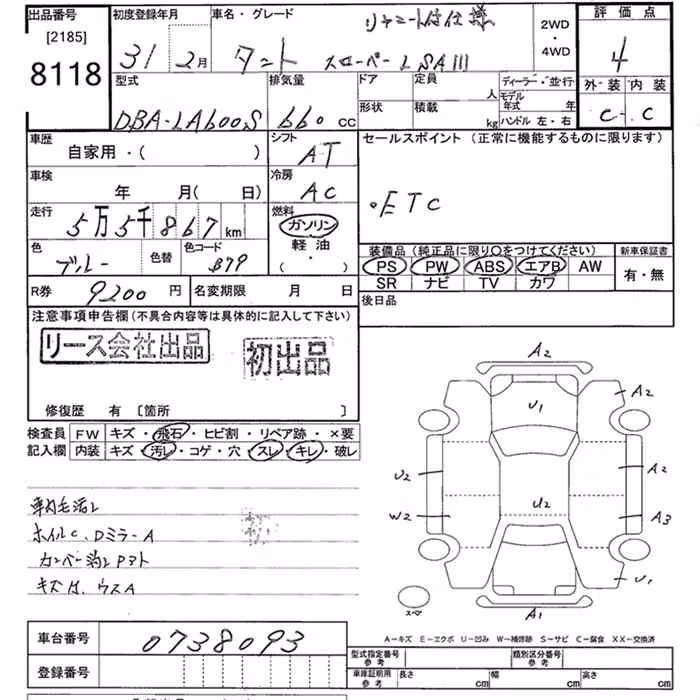 出品番号
[2185]
8118
初度登録年月
31 2月
車名・グレード
タント スローパーL SAⅢ
2WD
・
4WD
評価点
4
外装 内装
C C
型式
DBA-LA600S
排気量
660 cc
ドア
定員 人
形状
積載 kg
ディーラー・並行
モデル年式 年
ハンドル 左・右
車歴
自家用・( )
シフト
AT
セールスポイント (正常に機能するものに限ります)
・ETC
車検
年 月( 日)
冷房
AC
走行
5万5千867 km
燃料
ガソリン
軽油
( ・ )
色
ブルー
色替
色コード
B79
装備品 (純正品に限り○をつけてください)
PS PW ABS エアB AW
SR ナビ TV カワ
新車保証書
有・無
R券 9200 円
名変期限 月 日
後日品
注意事項申告欄 (不具合内容等は具体的に記入して下さい)
リース会社出品
初出品
修復歴 有 [箇所 ]
検査員記入欄
FW キズ・飛石・ヒビ割・リペア跡・×要
内装 キズ・汚レ・コゲ・穴・スレ・キレ・破レ
ホイルC、DミラーA
キズ有、ウスA
A2
U1
A2
A2
U2
U2
W2
A3
U1
A1
スペア
A-キズ E-エクボ U-凹み W-補修跡 S-サビ C-腐食 XX-交換済
車台番号 0738093
登録番号
型式指定番号 参考
類別区分番号 参考
車庫証明用 参考
長さ cm
幅 cm
高さ cm